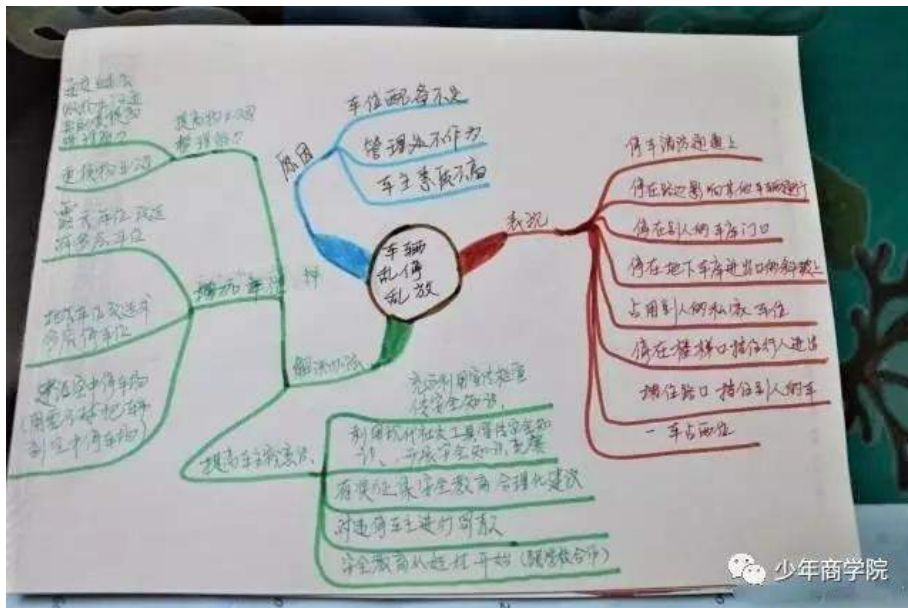 车辆
乱停
乱放
原因
车位配备不足
管理处不作为
车主素质不高
表现
停车消防通道上
停在路边影响其他车辆通行
停在别人的车库门口
停在地下车库进出口的斜坡上
占用别人的私家车位
停在楼梯口挡住行人进出
堵住路口 挡住别人的车
一车占两位
解决办法
提高物业公司
管理能力
更换物业公司
增加车位
露天车位改造
多层车位
地下车位改造成
多层停车位
建立空中停车场
到空中停车场)
提高车主安全意识
充分利用宣传栏宣
传安全知识
利用现代社交工具宣传安全知
识、开展安全知识竞赛
有奖征集安全教育合理化建议
对违停车主进行罚款
安全教育从娃娃开始(跟学校合作)
少年商学院